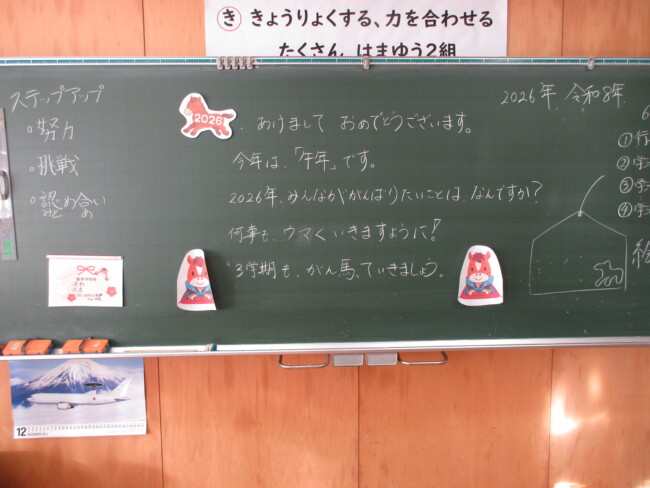 き きょうりょくする、力を合わせる
たくさん はまゆう2組
ステップアップ
努力
挑戦
認め合い
2026
あけまして おめでとうございます。
今年は、「午年」です。
2026年、みんながんばりたいことは、なんですか?
何事も、ウマくいきますように!
3学期も、がん馬っていきましょう。
2026年 令和8年
6
①行
②学
③学
④学
絵
12